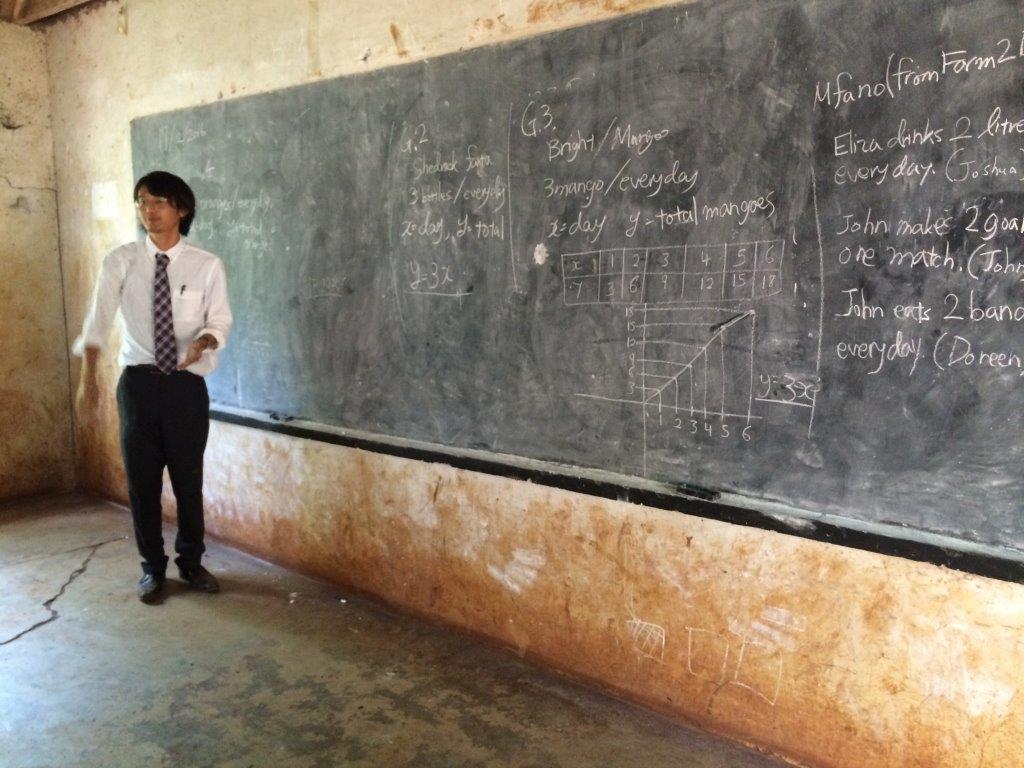 11/2/2016
G.2
Shedrack fanta
3 bottles/everyday
x=day, y=total
y=3x
G.3.
Bright/Mango
3mango/everyday
x=day y=total mangoes
x 1 2 3 4 5 6
y 3 6 9 12 15 18
18
15
12
9
6
3
1 2 3 4 5 6
y=3x
Mfano(from Form 2
Eliza drinks 2 litre
everyday. (Joshua)
John makes 2 goal
one match. (John
John eats 2 bana
everyday. (Doreen